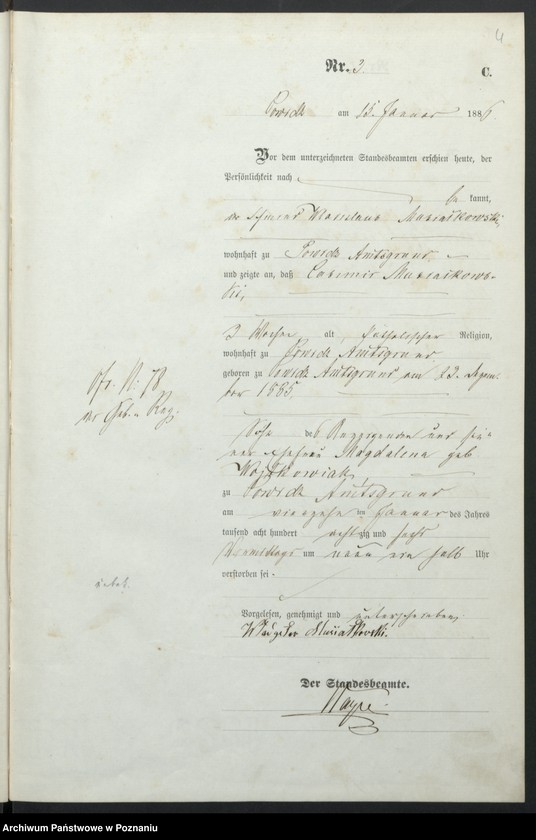 4
Nr. 3.
C.
Powidz am 15. Januar 1886.
Vor dem unterzeichneten Standesbeamten erschien heute, der
Persönlichkeit nach
be kannt,
der
wohnhaft zu Powidz Amtsgrund
und zeigte an, daß Casimir Muszalkows-
ki,
3 Wochen alt, katholischer Religion,
wohnhaft zu Powidz Amtsgrund
geboren zu Powidz Amtsgrund am 23. Dezem-
ber 1885,
Sohn des Anzeigenden und sei-
ner Ehefrau Magdalena geb
zu Powidz Amtsgrund
am vierzehnten Januar des Jahres
tausend acht hundert achtzig und sechs
Vormittags um neun ein halb Uhr
verstorben sei.
Vorgelesen, genehmigt und unterschrieben,
Der Standesbeamte.
cfr. N. 78
der Geb. Reg.
Archiwum Państwowe w Poznaniu